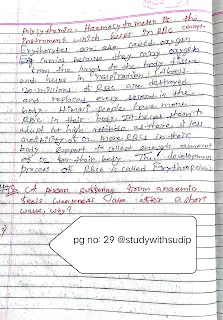 Polycythemia: Haemocytometer is the
instrument which helps in RBC count.
Erythrocytes are also called oxygen
carries because they carry oxygen
from the lungs to the body tissue
and helps in respiration.
20 millions of RBCs are destroyed
and replaces every second in the
body. Himali people have more
RBCs in their body. It helps them to
adapt to high altitude as there is less
availability of O2 more RBCs in their
body support to collect enough amount
of O2 for their body. The development
process of RBCs is called Erythropoiesis
Q. A person suffering from anaemia
feels weakness also after a short
walk, why?
pg no: 29 @studywithsudip